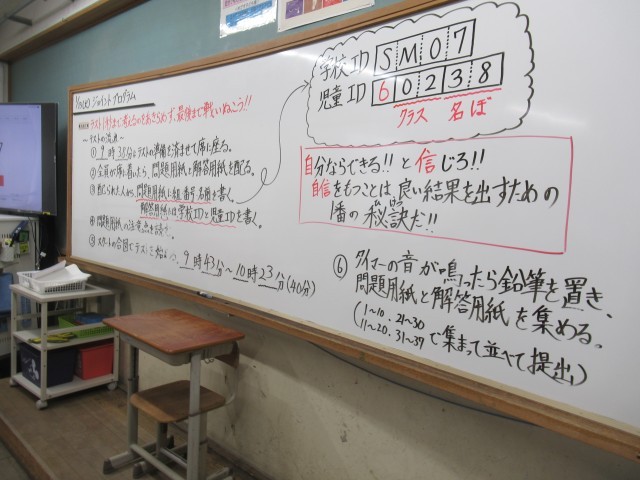 ジョイントプログラム
テスト1秒まで考えるのをあきらめず、最後まで戦いぬこう!!
テストの流れ
① 9時35分にテストの準備を済ませて席に座る。
② 全員が席に着いたら、問題用紙と解答用紙を配る。
③ 配られた人から、問題用紙に組 番号 名前を書く。
解答用紙には学校IDと児童IDを書く。
④ 問題用紙の注意点を
⑤ スタートの合図でテストを始
9時43分〜10時23分(40分)
学校ID SM07
児童ID 60238
クラス 名ぼ
自分ならできる!! と信じろ!!
自信をもつことは良い結果を出すための
1番の秘訣だ!!
ひけつ
⑥ タイマーの音が鳴ったら鉛筆を置き、
問題用紙と解答用紙を集める。
(1〜10.21〜30
11〜20.31〜39で集まって並べて提出)